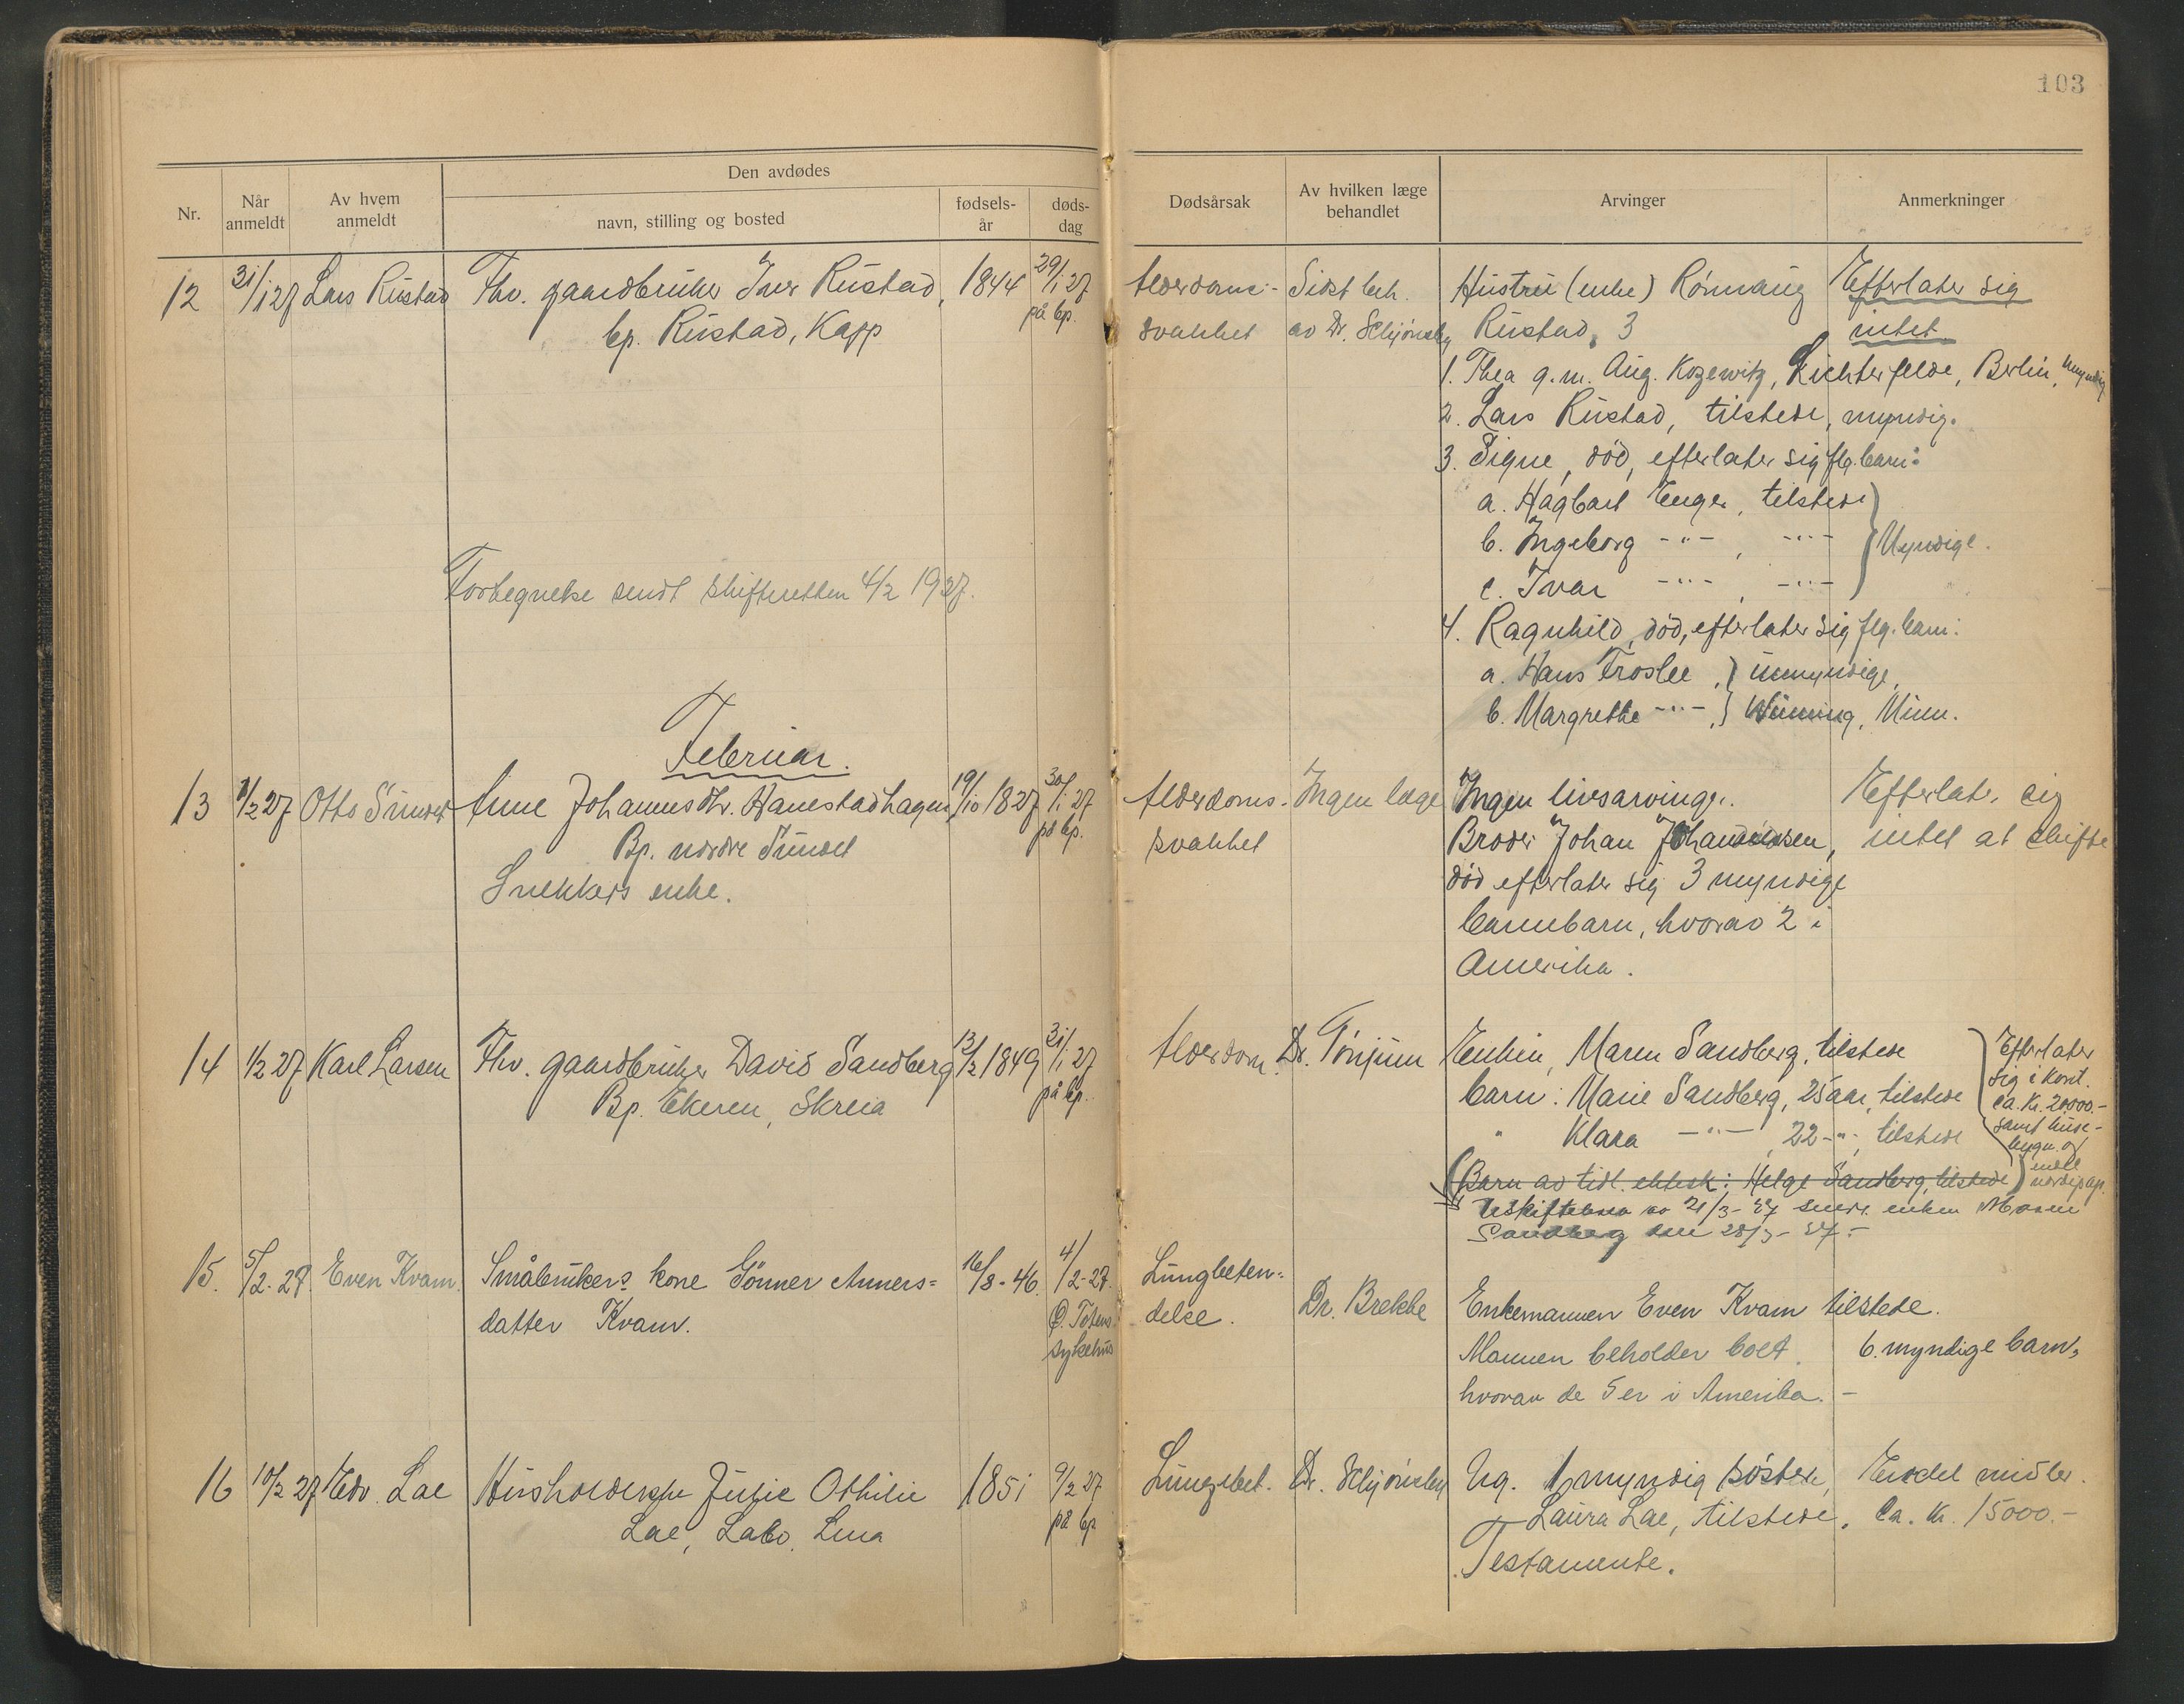 103
Nr.
Når anmeldt
Av hvem anmeldt
Den avdødes
navn, stilling og bosted
fødsels- år
døds- dag
Dødsårsak
Av hvilken læge behandlet
Arvinger
Anmerkninger
12 31/1 27 Lars Rustad Fhv. gaardbruker Iver Rustad, 1844 29/1 27
bp. Rustad, Kapp på bp.
Alderdoms- Sidst beh. Hustru (enke) Rønnaug Efterlater sig
svakhet av Dr. Schjønsby Rustad, 3 intet.
1. Thea g.m. Aug. Kozewitz, Lichterfelde, Berlin, myndig
2. Lars Rustad, tilstede, myndig.
3. Signe, död, efterlater sig flg. barn:
a. Hagbart Enger, tilstede
b. Ingeborg -"- , -"- Myndige.
c. Ivar -"- , -"-
4. Ragnhild, död, efterlater sig flg. barn:
a. Hans Froslee, umyndige,
b. Margrethe -"-, Minn.
Fortegnelse sendt skifteretten 4/2 1927.
Februar.
13 1/2 27 Otto Sundet Anne Johannesdtr. Hanestadhagen 19/10 1827 30/1 27
Bp. nordre Sundet på bp.
Snekkers enke.
Alderdoms- Ingen læge Ingen livsarvinger. Efterlater sig
svakhet Broder Johan Johannessen, intet at skifte
död efterlater sig 3 myndige
barnebarn, hvorav 2 i
Amerika.
14 1/2 27 Karl Larsen Fhv. gaardbruker David Sandberg 13/2 1849 31/1 27
Bp. Ekeren, Skreia på bp.
Alderdom. Dr. Tönjum Enken, Maren Sandberg, tilstede
barn: Marie Sandberg, 25 aar, tilstede
" Klara -"- , 22 -"-, tilstede
Efterlater
sig i kont.
ca. Kr. 20000.-
samt huse-
bygn. og
endel
verdipap.
Barn av tidl. ektesk: Helge Sandberg, tilstede
av 21/3-27 sendt enken Maren
Sandberg den 28/3-27.-
15. 5/2-27. Even Kvam. Småbrukers kone Gönner Anners- 16/8-46. 4/2-27.
datter Kvam. Ø. Totens
sykehus
Lungbeten-
delse. Dr. Brekke Enkemannen Even Kvam tilstede.
Mannen beholder boet. 6 myndige barn,
hvorav de 5 er i Amerika. -
16 10/2 27 Edv. Lae Husholderske Julie Othilie 1851 9/2 27
Lae, Labo, Lena på bp
Lungebet. Dr. Schjønsby Ug. 1 myndig søster, Endel midler.
Laura Lae, tilstede. Ca. Kr. 15000.-
Testamente.